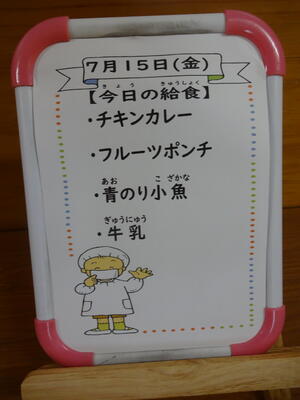 7月15日(金)
きょう きゅうしょく
【今日の給食】
・チキンカレー
・フルーツポンチ
あお こざかな
・青のり小魚
ぎゅうにゅう
・牛乳